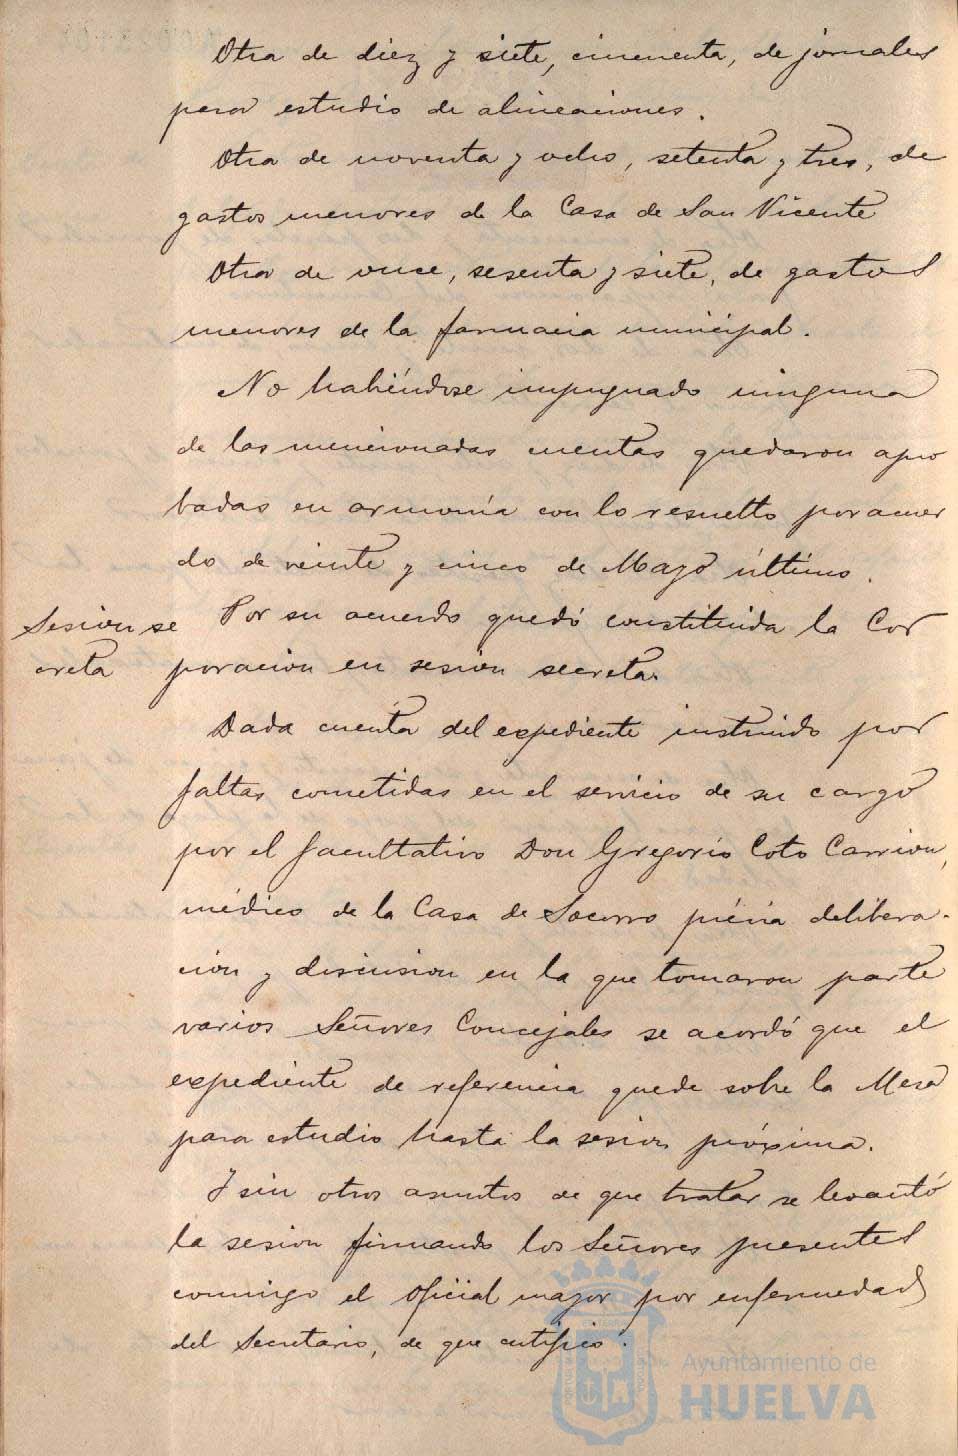 Otra de diez y siete, cincuenta, de jornales
para estudio de alineaciones.
Otra de noventa y ocho, setenta y tres, de
gastos menores de la Casa de San Vicente
Otra de once, sesenta y siete, de gastos
menores de la farmacia municipal.
No habiéndose impugnado ninguna
de las mencionadas cuentas quedaron apro
badas en armonía con lo resuelto por acuer
do de veinte y cinco de Mayo último.
Sesión se
creta
Por su acuerdo quedó constituida la Cor
poracion en sesión secreta.
Dada cuenta del expediente instruido por
faltas cometidas en el servicio de su cargo
por el facultativo Don Gregorio Coto Carrion,
médico de la Casa de Socorro prévia delibera-
cion y discusion en la que tomaron parte
varios Señores Concejales se acordó que el
expediente de referencia quede sobre la Mesa
para estudio hasta la sesion próxima.
Y sin otros asuntos de que tratar se levantó
la sesion firmando los Señores presentes
conmigo el oficial mayor por enfermedad
del Secretario, de que certifico.
Ayuntamiento de
HUELVA